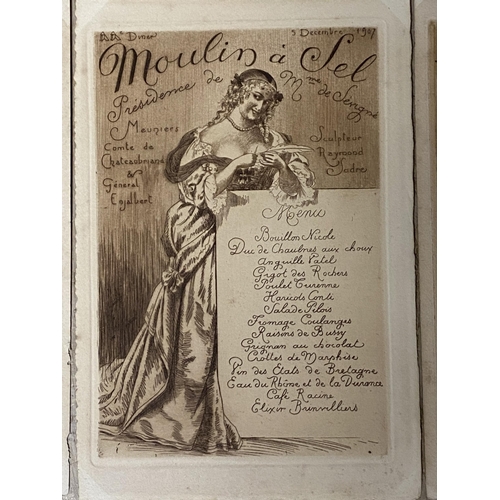 Diner
5 Decembre 1907
Moulin à Sel
Présidence de Mme de Sévigné
Meuniers
Comte de
Chateaubriand
&
Général
Enjalbert
Sculpteur
Raymond
Sudre
Menu
Bouillon Nicole
Duc de Chaulnes aux choux
Anguille Vatel
Gigot des Rochers
Poulet Turenne
Haricots Conti
Salade Pilois
Fromage Coulanges
Raisins de Bussy
Grignan au chocolat
Crottes de Marphise
Vin des Etats de Bretagne
Eau du Rhône et de la Durance
Café Racine
Elixir Brinvilliers